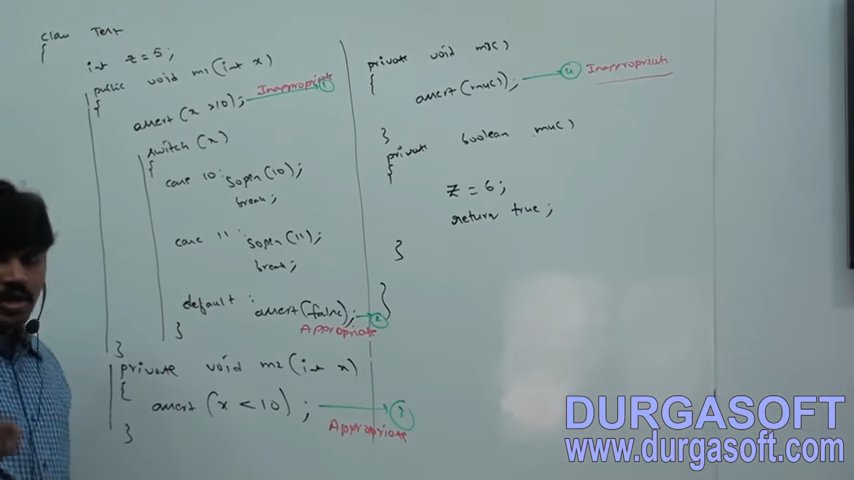 class Test
{
int z=5;
public void m1(int x)
{
assert(x>10); Inappropriate 1
switch(x)
{
case 10: sopln(10);
break;
case 11: sopln(11);
break;
default: assert(false); 2
Appropriate
}
}
private void m2(int x)
{
assert(x<10); 3
Appropriate
}
private void m3()
{
assert(m4()); 4 Inappropriate
}
private boolean m4()
{
z=6;
return true;
}
}
DURGASOFT
www.durgasoft.com